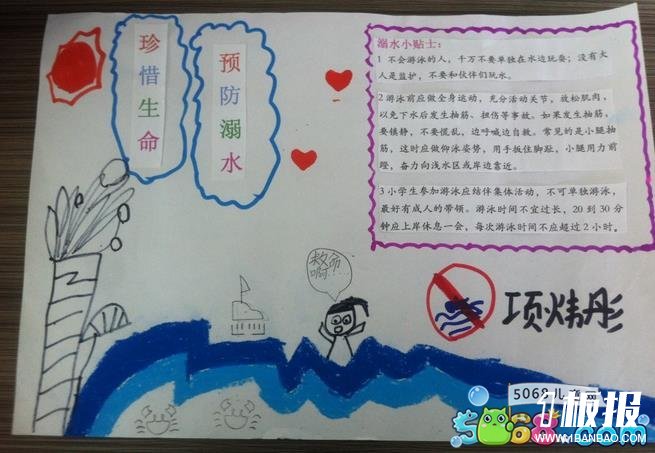 珍惜生命
预防溺水
溺水小贴士：
1 不会游泳的人，千万不要单独在水边玩耍；没有大
人是监护，不要和伙伴们玩水。
2 游泳前应做全身运动，充分活动关节，放松肌肉，
以免下水后发生抽筋、扭伤等事故。如果发生抽筋，
要镇静，不要慌乱，边呼喊边自救。常见的是小腿抽
筋，这时应做仰泳姿势，用手扳住脚趾，小腿用力前
蹬，奋力向浅水区或岸边靠近。
3 小学生参加游泳应结伴集体活动，不可单独游泳，
最好有成人的带领。游泳时间不宜过长，20 到 30 分
钟应上岸休息一会，每次游泳时间不应超过 2 小时。
救命
啊!…
项炜彤
5068儿童网
板报
5068.com
WWW.41BANBAO.COM